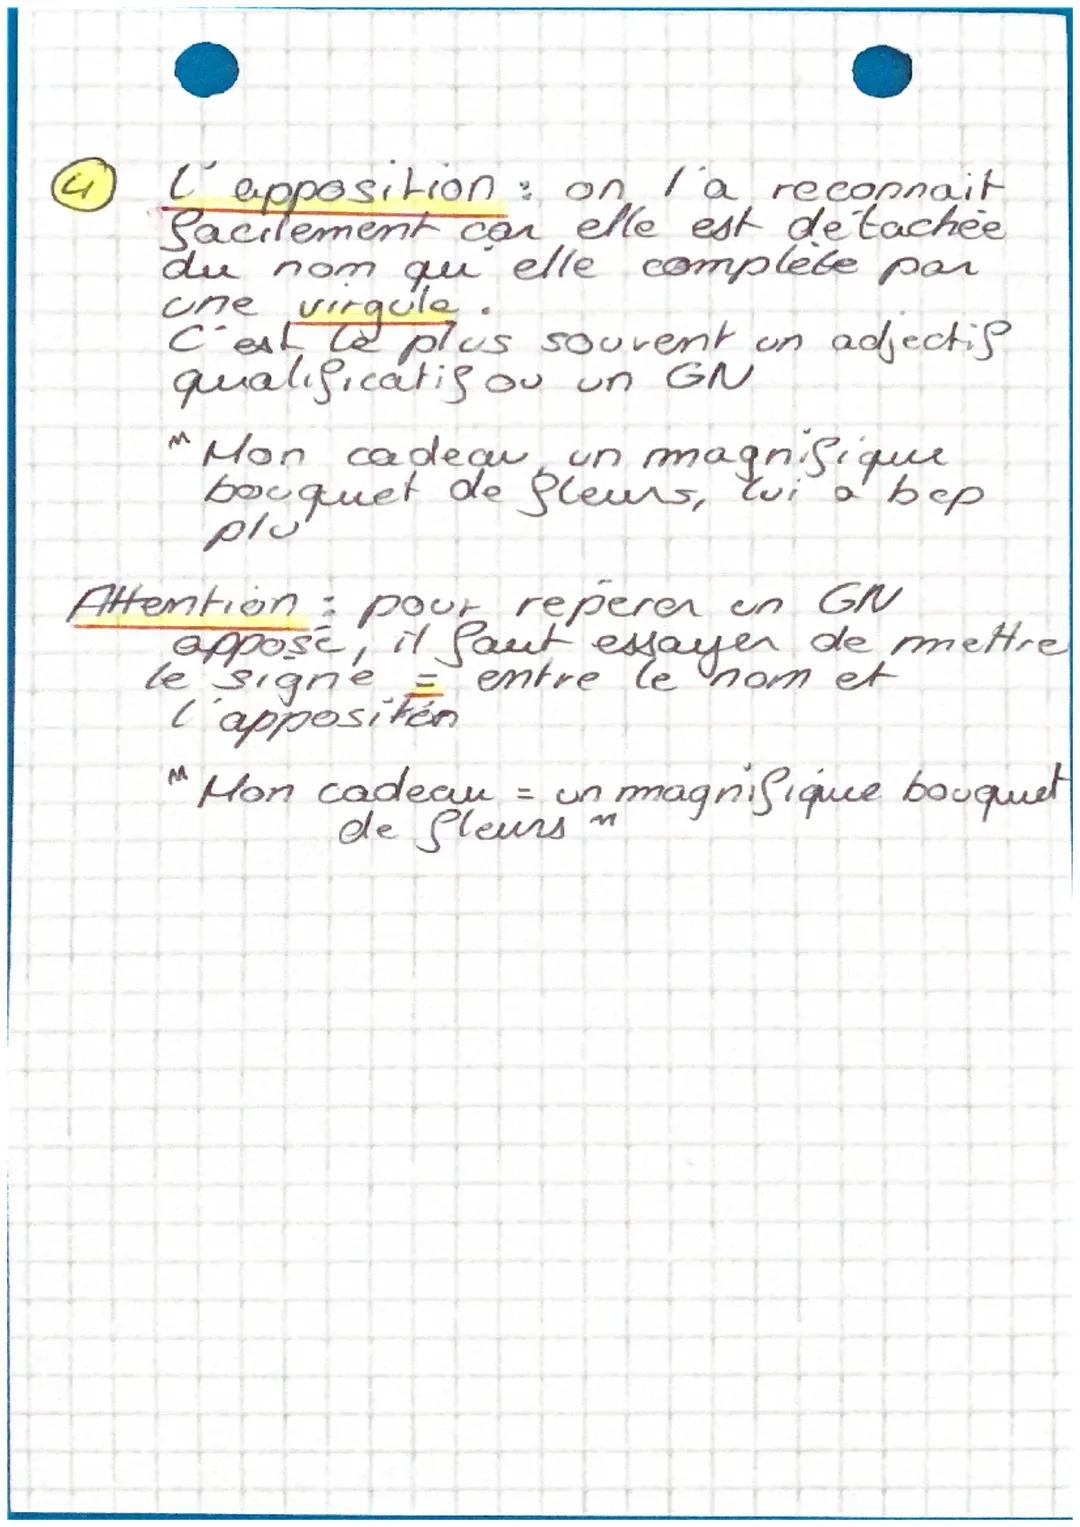 4 L'apposition : on l'a reconnait
facilement car elle est détachée
du nom qu'elle complète par
une virgule.
C'est le plus souvent un adjectif
qualificatif ou un GN
" Mon cadeau, un magnifique
bouquet de fleurs, lui a bcp
plu
Attention : pour repérer un GN
apposé, il faut essayer de mettre
le signe = entre le nom et
l'apposition
" Mon cadeau = un magnifique bouquet
de fleurs "